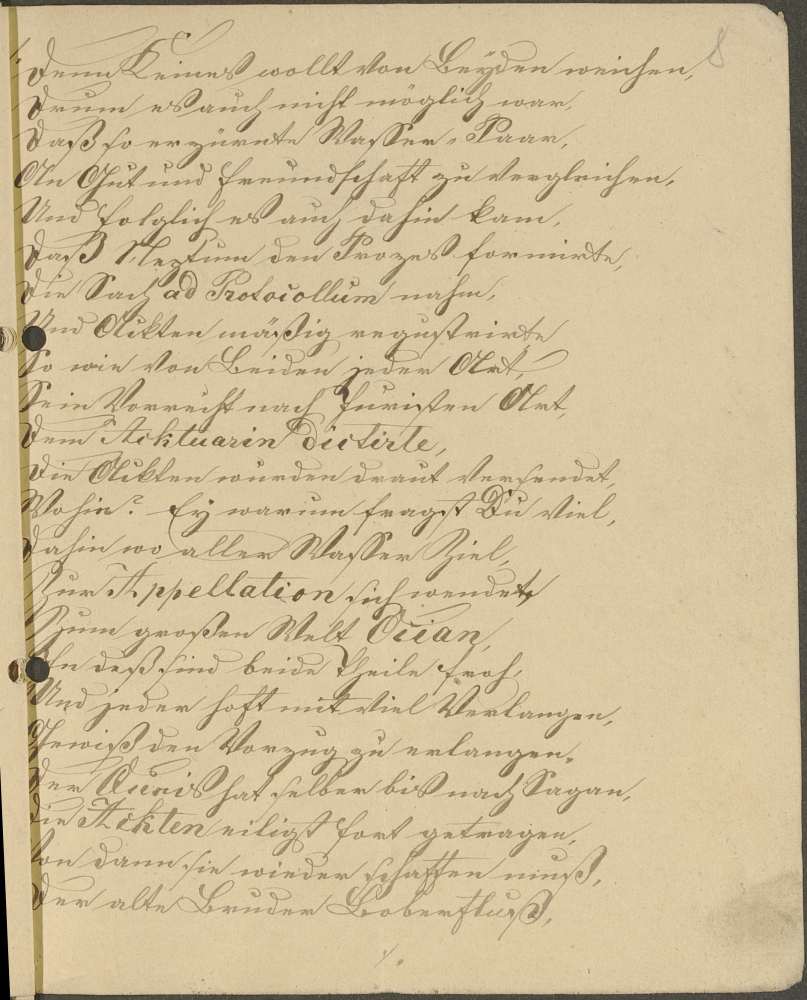 8
Denn Keines wollt von Beyden weichen,
Drum es auch nicht möglich war,
Daß so erzürnte Wasser-Paar,
In Gut und Freundschaft zu vergleichen,
Und folglich es auch dahin kam,
Daß Neptum den Prozes formirte,
Die Sach ad Protocollum nahm,
Und Ackten mäßig regustrirte
So wie von Beiden jeder Art,
Sein Vorrecht nach Juristen Art,
Dem Acktuarin dictirte,
Die Ackten wurden drauf versendet,
Wohin? Ey warum fragst Du viel,
Dahin wo aller Wasser Ziel,
Zur Appellation sich wendet,
Zum großen Welt Ocian,
In deß sind beide Theile froh,
Und jeder hoft mit viel Verlangen,
Gewiß den Vorzug zu erlangen.
Der Queis hat selber bis nach Sagan,
Die Ackten eiligst fort getragen,
Von dann sie wieder schaffen muß,
Der alte Bruder Boberfluß,